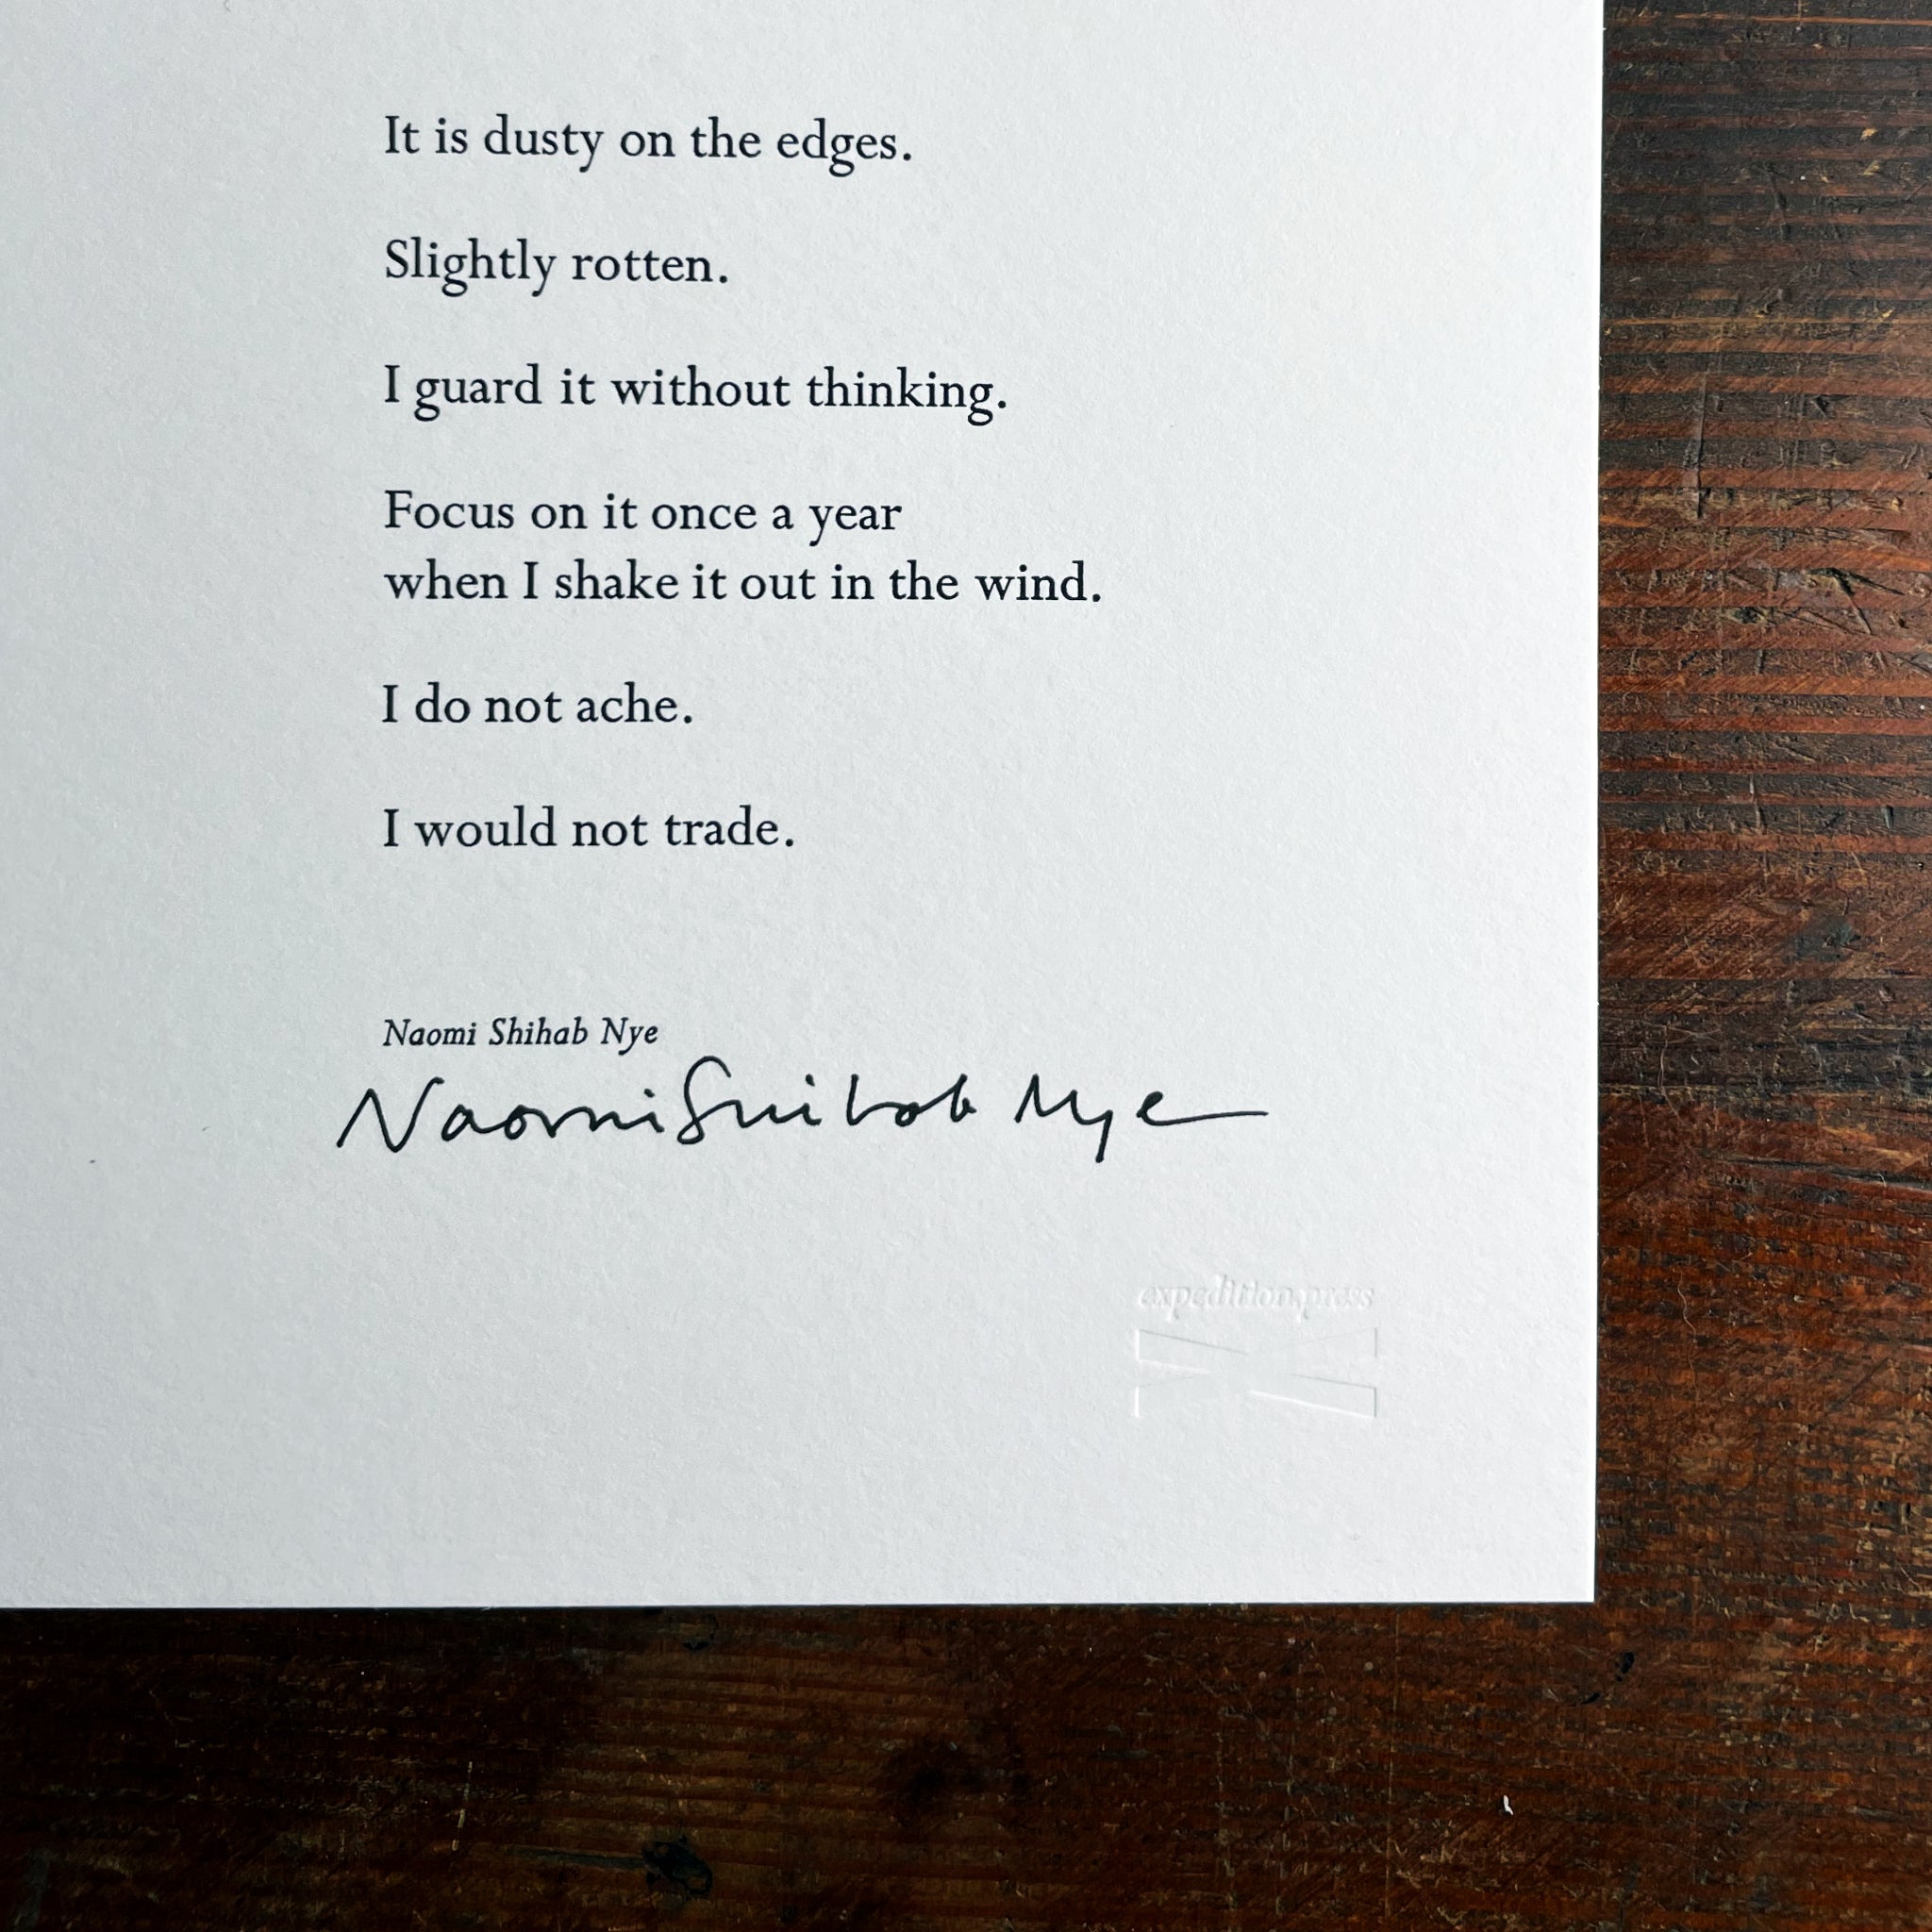 It is dusty on the edges.
Slightly rotten.
I guard it without thinking.
Focus on it once a year
when I shake it out in the wind.
I do not ache.
I would not trade.
Naomi Shihab Nye
Naomi Shihab Nye
expedition press